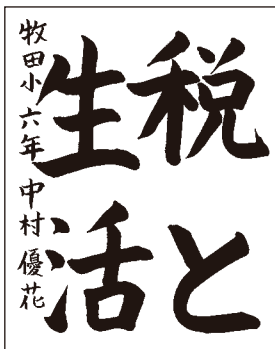 税と
生活
牧田小六年 中村優花